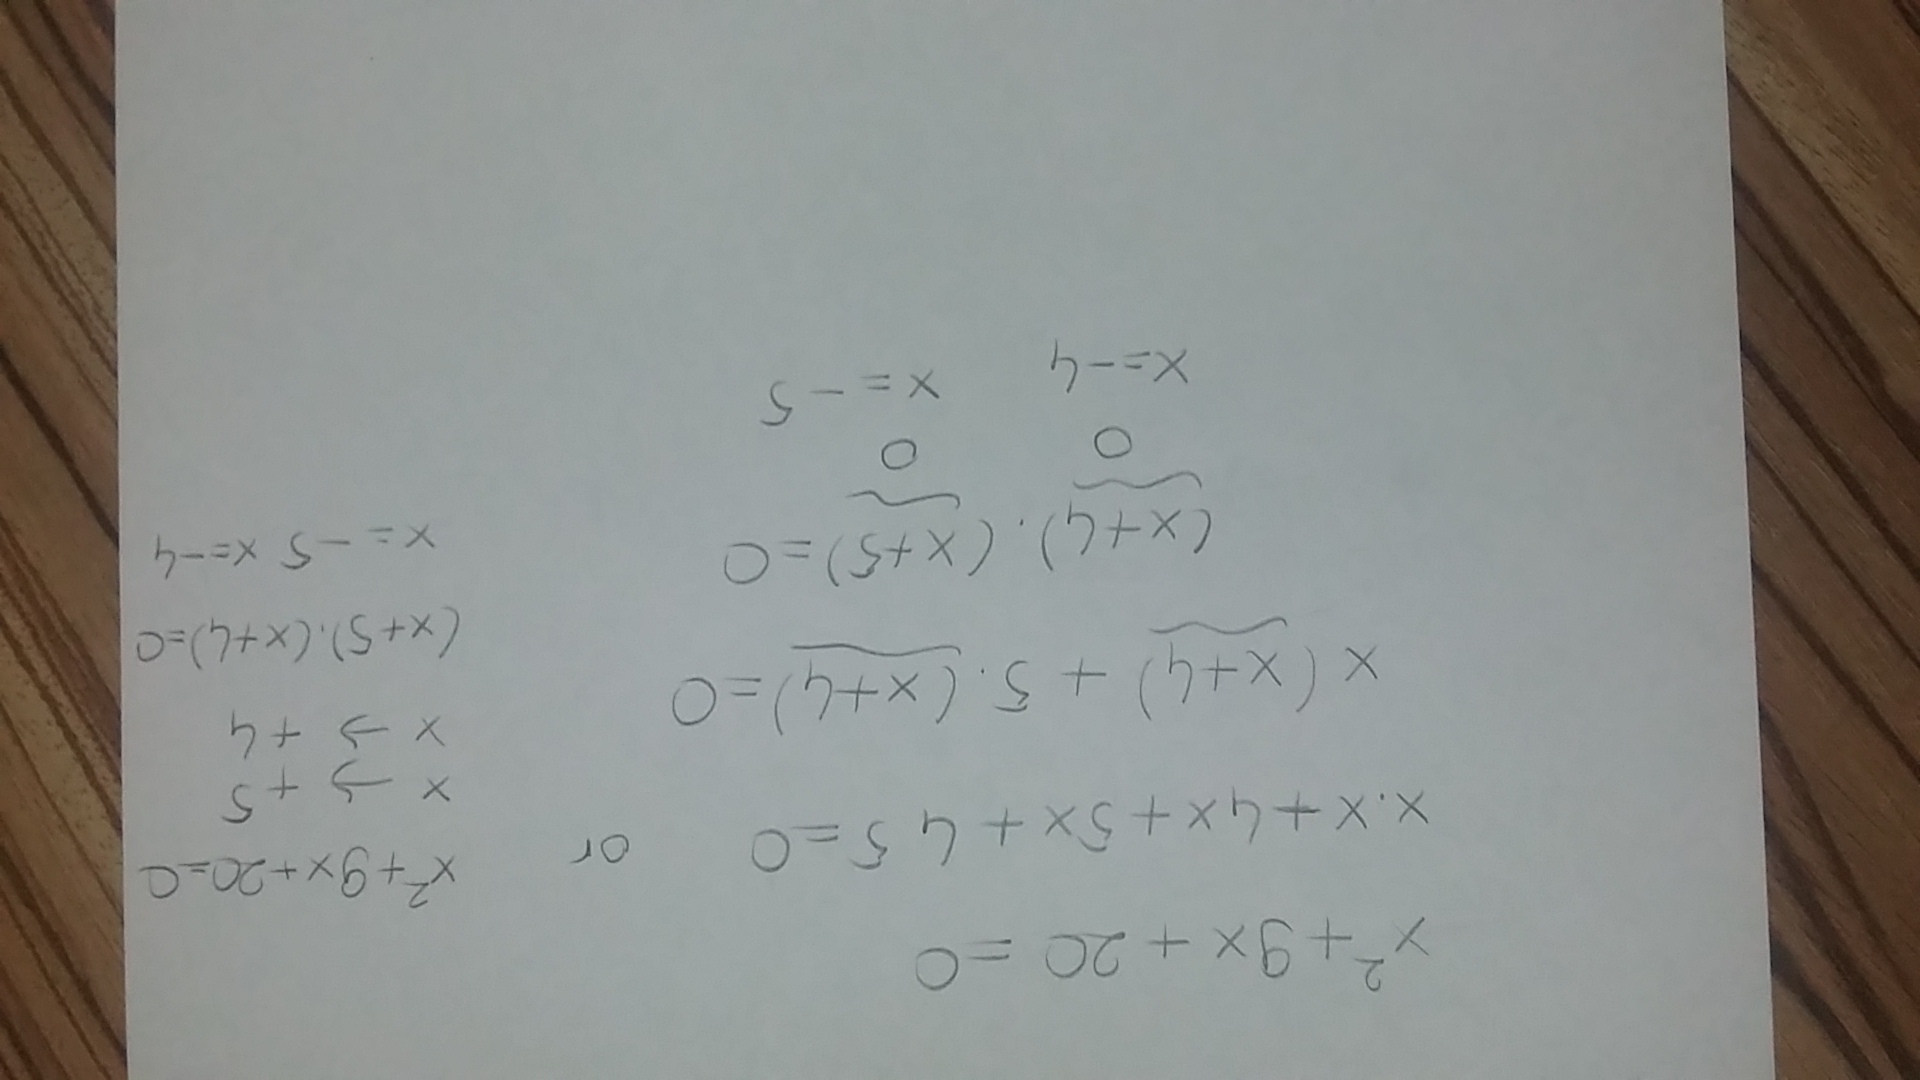 x²+9x+20=0
x.x+4x+5x+4 5=0
x(x+4)+5.(x+4)=0
(x+4).(x+5)=0
0 0
x=-4 x=-5
or
x²+9x+20=0
x → +5
x → +4
(x+5).(x+4)=0
x=-5 x=-4